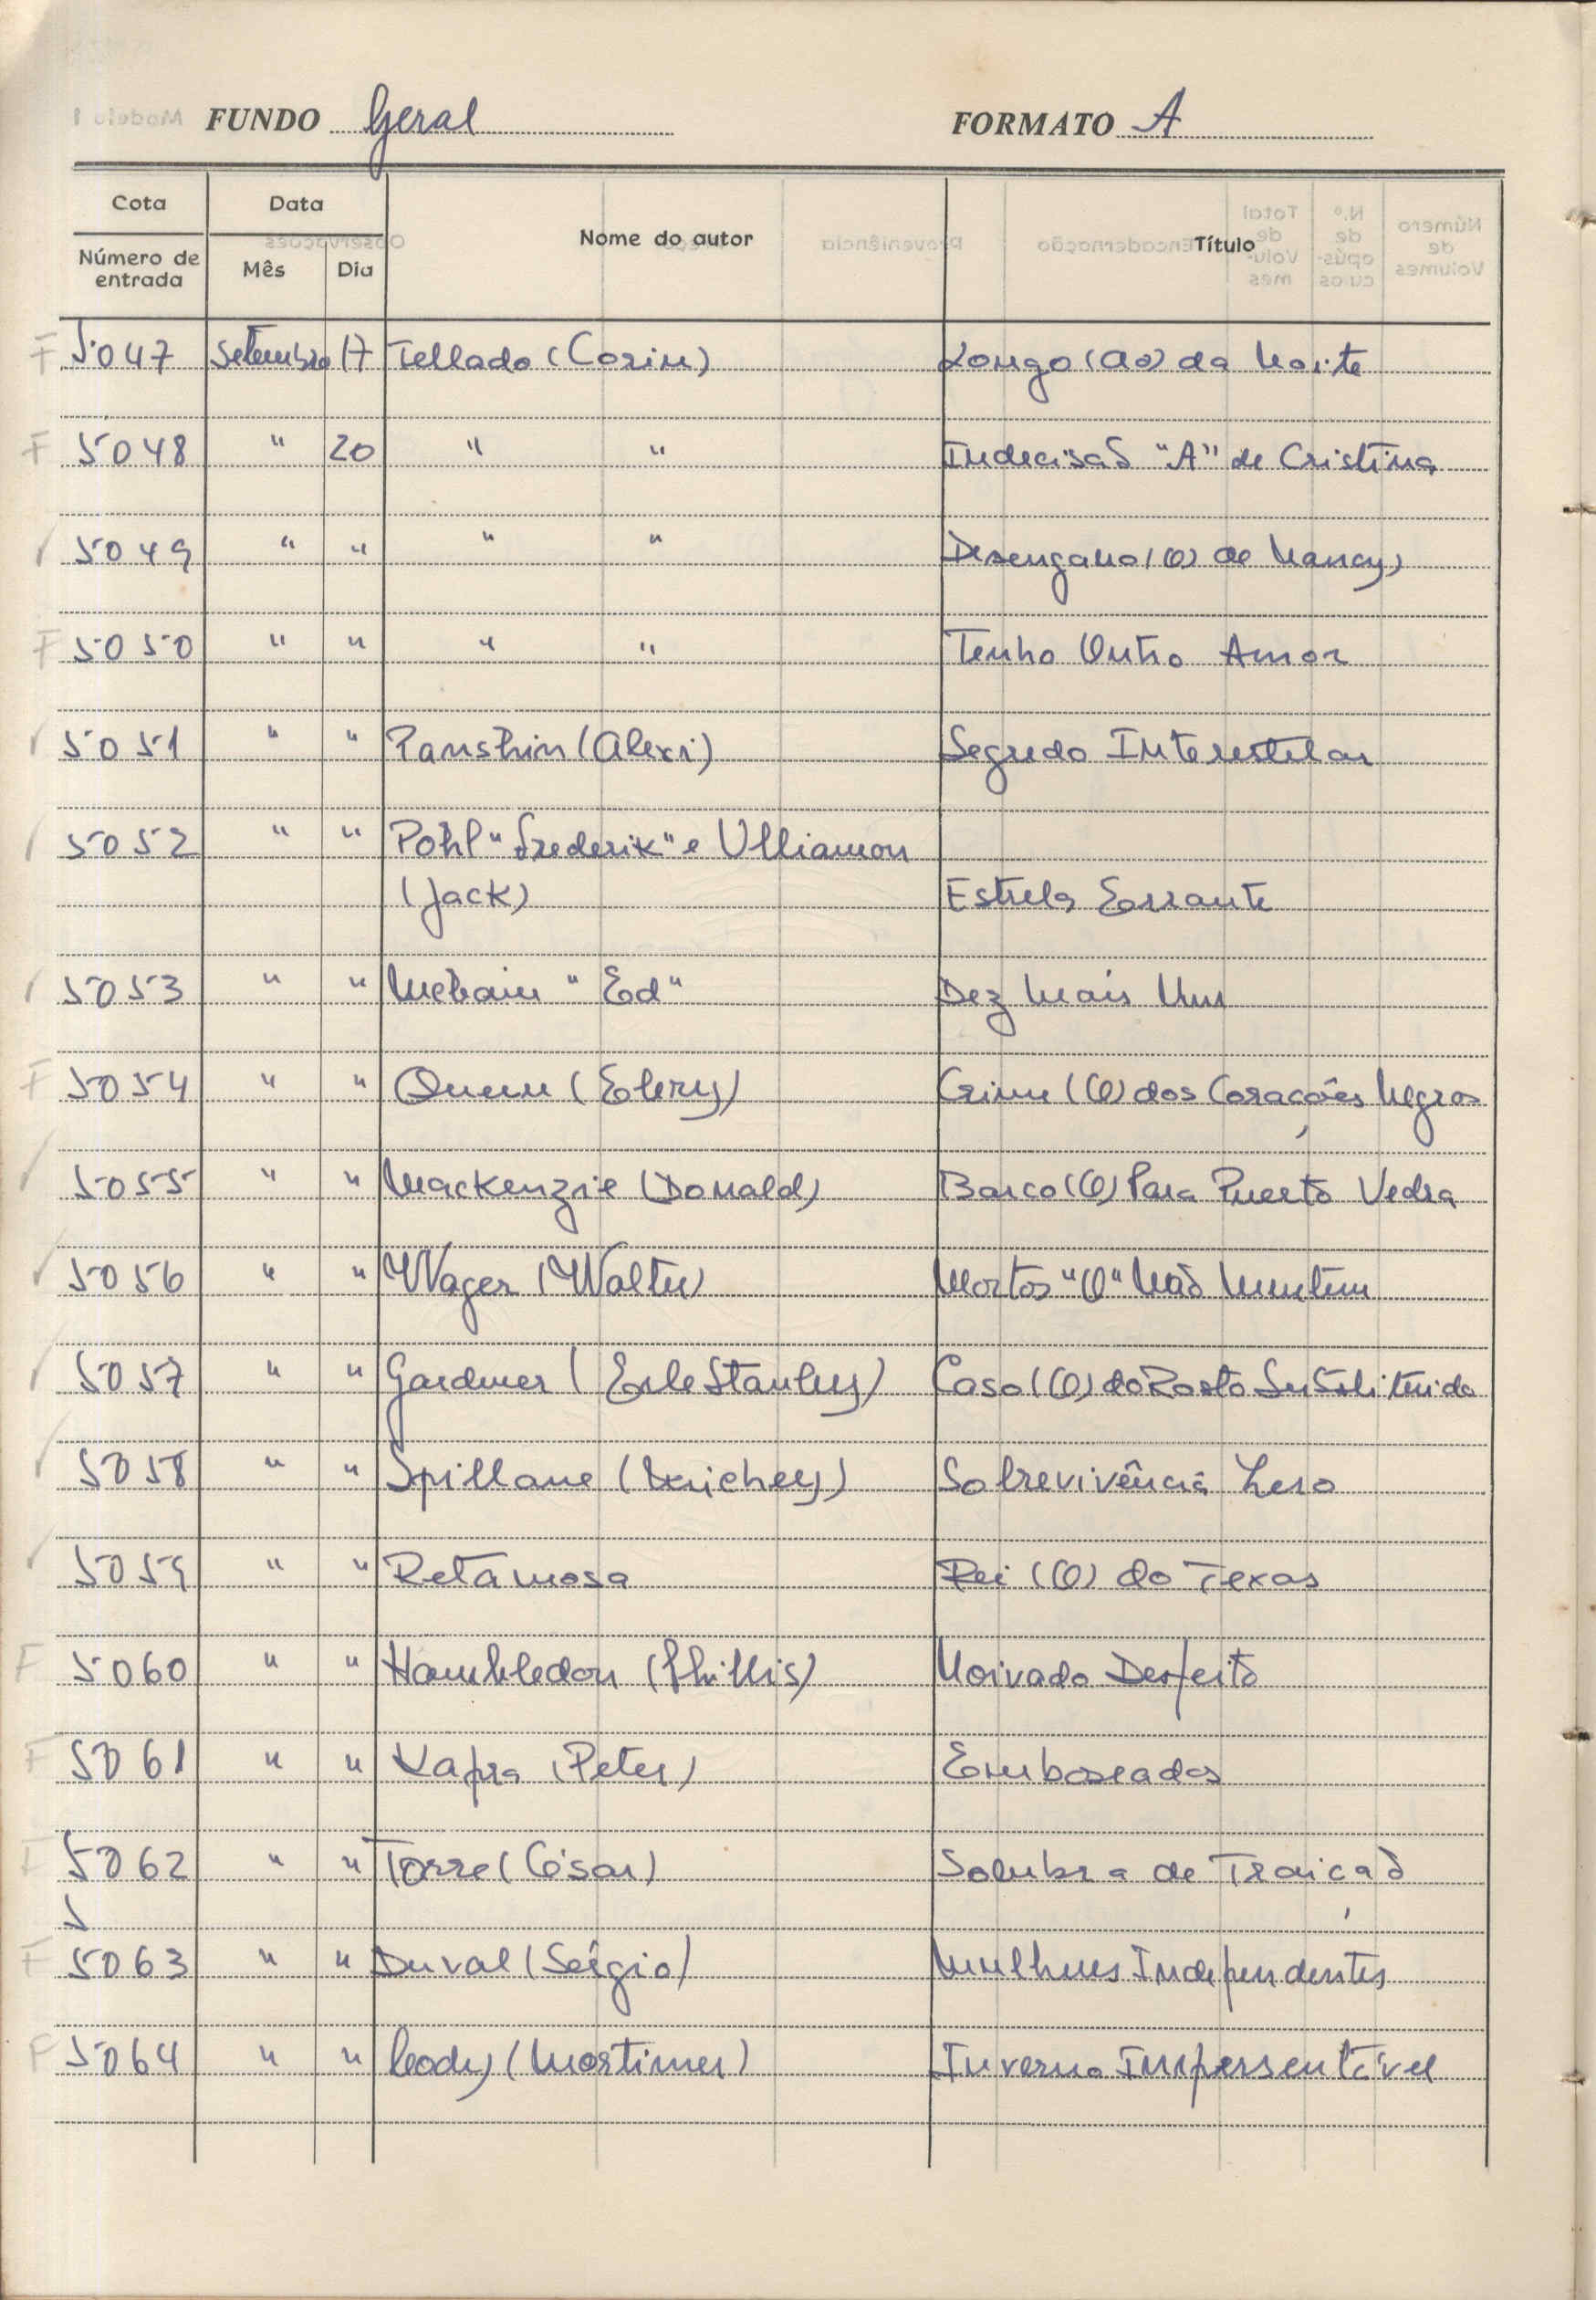 FUNDO Geral FORMATO A
Cota Data Nome do autor Título
Número de entrada Mês Dia
F 5047 Setembro 17 Tellado (Corin) Longo (ao) da Noite
F 5048 " 20 " " Indecisaõ "A" de Cristina
✓ 5049 " " " " Desengano (O) de Nancy)
F 5050 " " " " Tenho Outro Amor
✓ 5051 " " Panshin (Alexi) Segredo Interestelar
✓ 5052 " " Pohl "Frederik" e Ulliamon
(Jack) Estrela Errante
✓ 5053 " " Mcbain "Ed" Dez Mais Um
F 5054 " " Queen (Ellery) Crime (O) dos Corações Negros
✓ 5055 " " Mackenzie (Donald) Barco (O) Para Puerto Vedra
✓ 5056 " " Wager (Walter) Mortos "O" Não Mentem
✓ 5057 " " Gardner (Erle Stanley) Caso (O) do Rosto Substituido
✓ 5058 " " Spillane (Mickey) Sobrevivência Zero
✓ 5059 " " Retamosa Rei (O) do Texas
F 5060 " " Hambledon (Phillis) Noivado Desfeito
F 5061 " " Kapra (Peter) Emboscados
F 5062 " " Torre (César) Sombra de Traição
5
F 5063 " " Duval (Sérgio) Mulheres Independentes
F 5064 " " Cody (Mortimer)